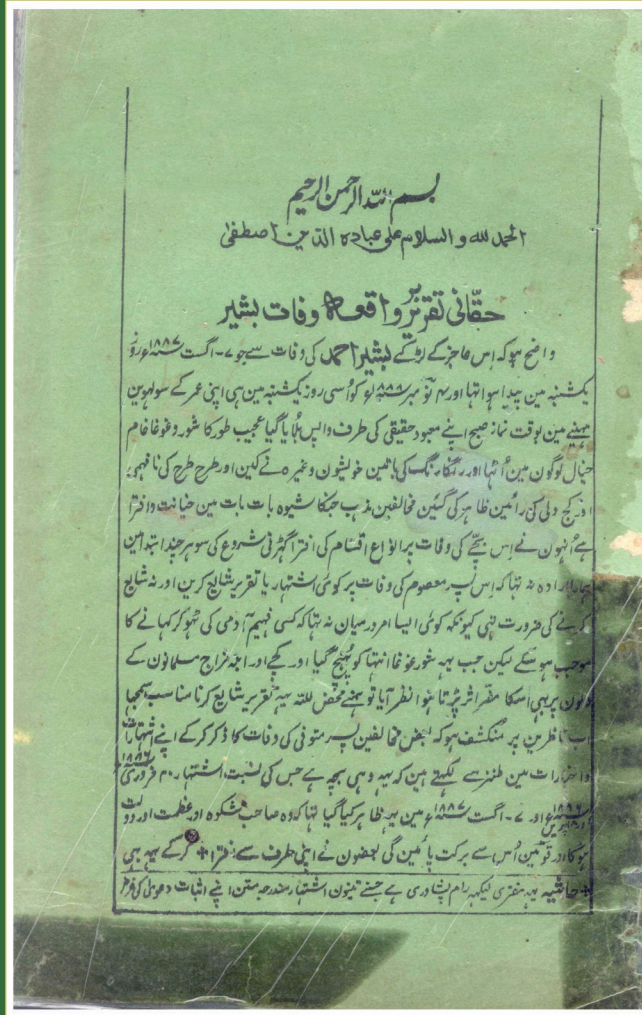 بسم اللہ الرحمن الرحیم
الحمد للہ والسلام علی عبادہ الذین اصطفیٰ
حقّانی تقریر بر واقعہ وفات بشیر
واضح ہو کہ اِس عاجز کے لڑکے بشیر احمد کی وفات سے جو ۷۔اگست ۱۸۸۷ء روز
یکشنبہ مین پیدا ہوا تہا اور ۴ نومبر ۱۸۸۸ء کو اُسی روز یکشنبہ مین ہی اپنی عمر کے سولہوین
مہینے مین بوقت نماز صبح اپنے معبود حقیقی کی طرف واپس بُلایا گیا عجیب طور کا شور و غوغا خام
خیال لوگون مین اُٹہا اور رنگارنگ کی باتین خویشون وغیرہ نے کین اور طرح طرح کی نافہمی
اور کج دلی کی رائین ظاہر کی گئین مخالفین مذہب جنکا شیوہ بات بات مین خیانت و افترا
ہے اُنہون نے اِس بچّے کی وفات پر انواع اقسام کی افترا گہڑنی شروع کی سو ہر چند ابتدا مین
ہمارا ارادہ نہ تہا کہ اِس پسر معصوم کی وفات پر کوئی اشتہار یا تقریر شایع کرین اور نہ شایع
کرنے کی ضرورت تہی کیونکہ کوئی ایسا امر درمیان نہ تہا کہ کسی فہیم آدمی کی ٹہوکر کہانے کا
موجب ہو سکے لیکن جب یہہ شور و غوغا انتہا کو پُہنچ گیا اور کچے اور ابلہ مزاج مسلمانون کے
دلون پر بہی اسکا مضر اثر پڑتا ہوا نظر آیا تو ہمنے محض للہ یہہ تقریر شایع کرنا مناسب سمجہا
اب ناظرین پر منکشف ہو کہ بعض مخالفین پسر متوفی کی وفات کا ذکر کر کے اپنے اشتہارات
و اخبارات مین طنز سے لکہتے ہین کہ یہہ وہی بچہ ہے جس کی نسبت اشتہار ۲۰ فروری ۱۸۸۶ء
و ۸ اپریل ۱۸۸۶ء اور ۷۔اگست ۱۸۸۷ء مین یہہ ظاہر کیا گیا تہا کہ وہ صاحب شکوہ اور عظمت اور دولت
ہوگا اور قومین اُس سے برکت پائین گی بعضون نے اپنی طرف سے افترا + کر کے یہہ بہی
+ حاشیہ یہہ مفتری لیکہرام پشاوری ہے جسنے تینون اشتہار مندرجہ متن اپنے اثبات دعویٰ کی غرض